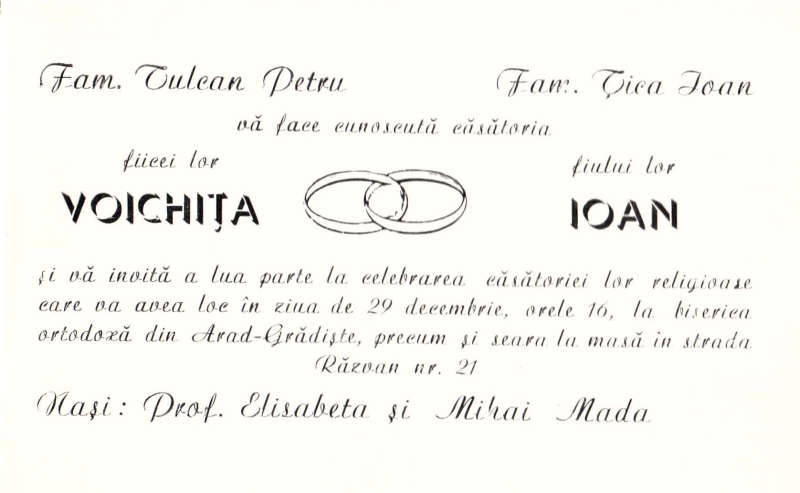 Fam. Tulcan Petru Fam. Țica Ioan
vă face cunoscută căsătoria
fiicei lor fiului lor
VOICHIȚA IOAN
și vă invită a lua parte la celebrarea căsătoriei lor religioase
care va avea loc în ziua de 29 decembrie, orele 16, la biserica
ortodoxă din Arad-Grădiște, precum și seara la masă în strada
Răzvan nr. 21
Nași: Prof. Elisabeta și Mihai Mada